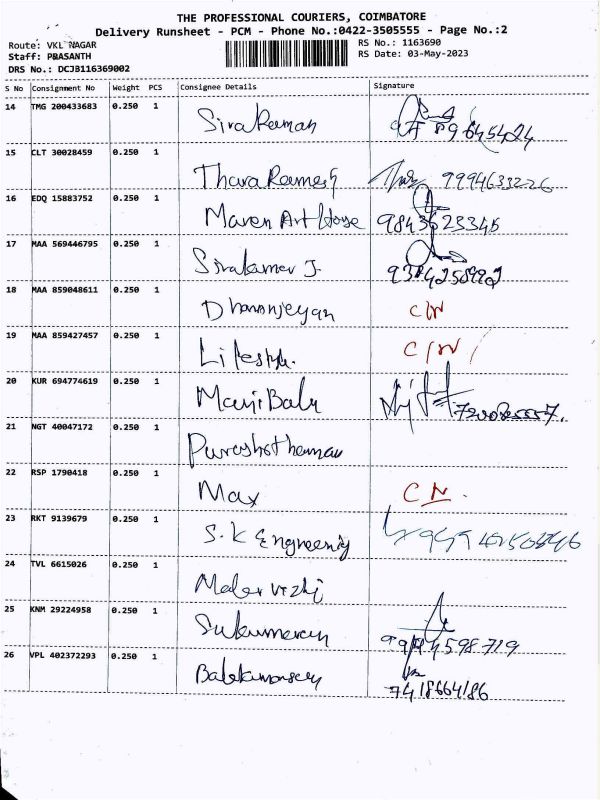 THE PROFESSIONAL COURIERS, COIMBATORE
Delivery Runsheet - PCM - Phone No.:0422-3505555 - Page No.:2
Route: VKL NAGAR RS No.: 1163690
Staff: PRASANTH RS Date: 03-May-2023
DRS No.: DCJB116369002
S No Consignment No Weight PCS Consignee Details Signature
14 TMG 200433683 0.250 1 Sivaraman
15 CLT 30028459 0.250 1 Thara Ramesh 9994633226
16 EDQ 15883752 0.250 1 Maven Art House
17 MAA 569446795 0.250 1 Sivakumar J.
18 MAA 859048611 0.250 1 Dhananjeyan C/N
19 MAA 859427457 0.250 1 Lifestyle. C/N
20 KUR 694774619 0.250 1 Mani Balu
21 NGT 40047172 0.250 1 Purushothaman
22 RSP 1790418 0.250 1 Max C N.
23 RKT 9139679 0.250 1 S.K Engneering
24 TVL 6615026 0.250 1 Malar vizhi
25 KNM 29224958 0.250 1 Sukumaran
26 VPL 402372293 0.250 1 7418664186